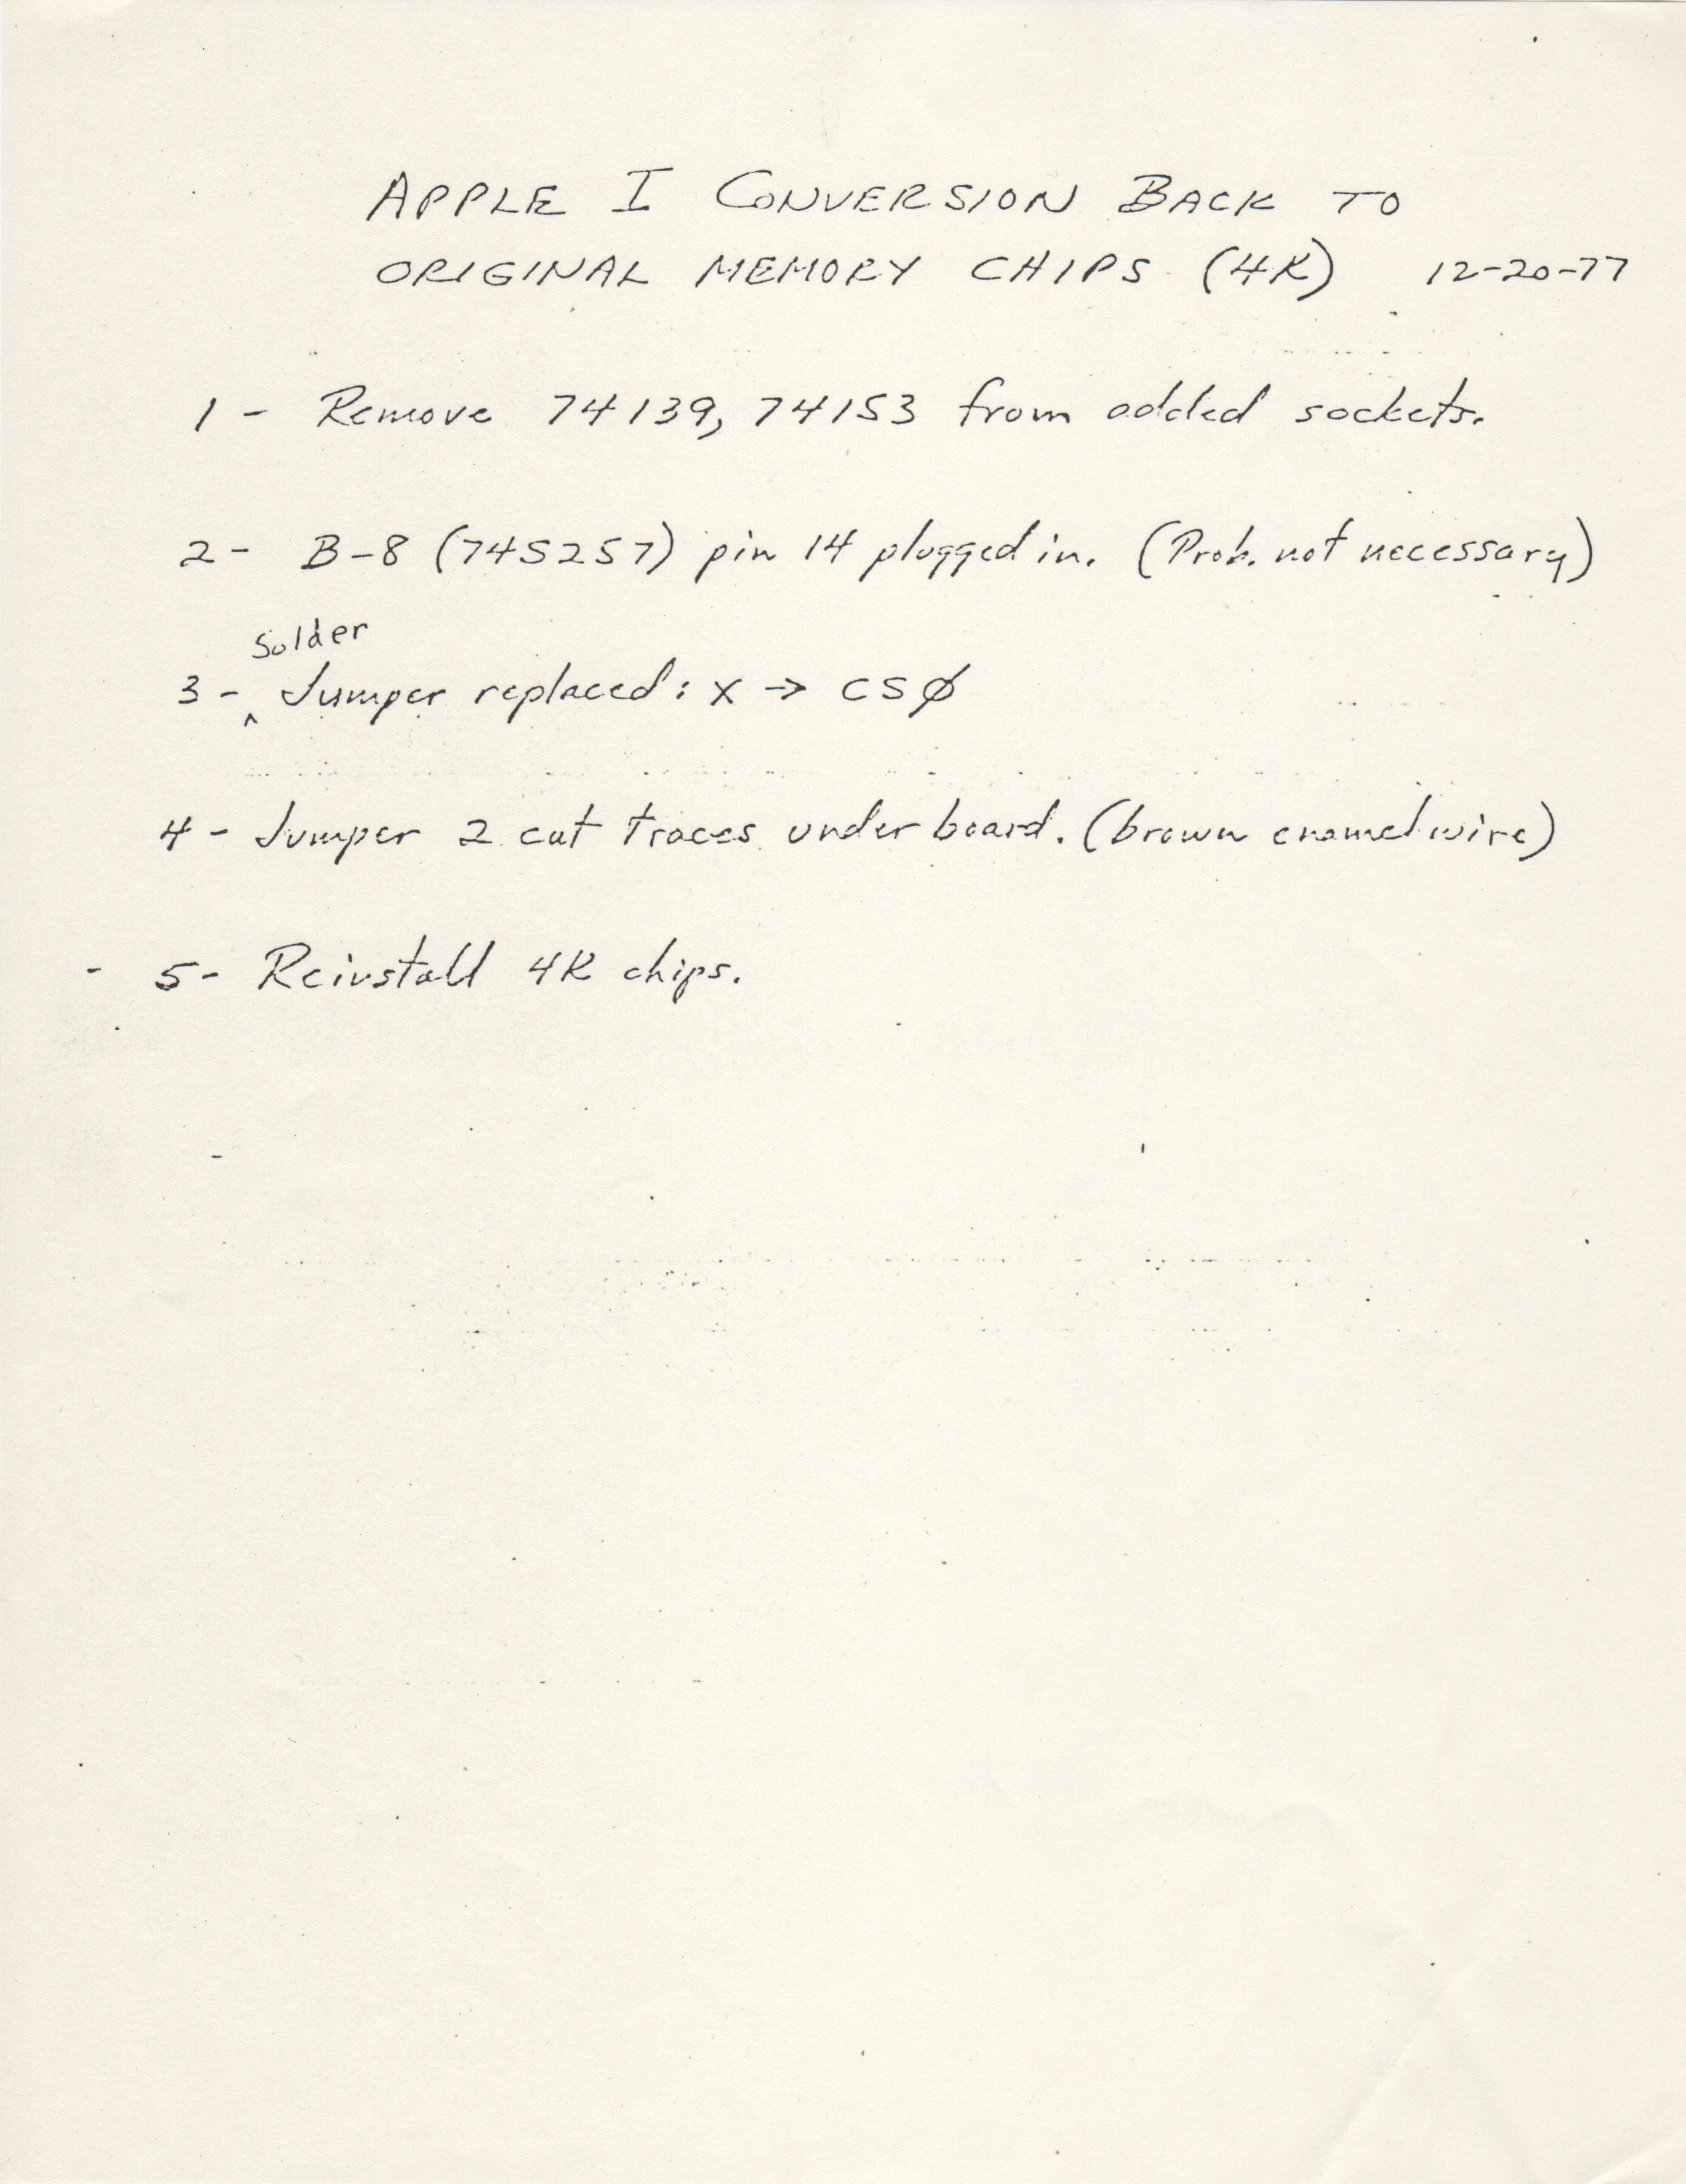 APPLE I CONVERSION BACK TO
ORIGINAL MEMORY CHIPS (4K) 12-20-77
1 - Remove 74139, 74153 from added sockets.
2 - B-8 (74S257) pin 14 plugged in. (Prob. not necessary)
Solder
3 - ^ Jumper replaced: X → CSØ
4 - Jumper 2 cut traces under board. (brown enamel wire)
5 - Reinstall 4K chips.